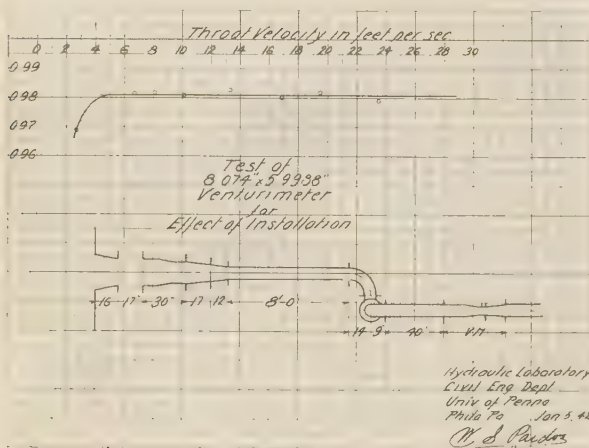 Throat Velocity in feet per sec
0 2 4 6 8 10 12 14 16 18 20 22 24 26 28 30
0.99
0.98
0.97
0.96
Test of
8.074" x 5.9938"
Venturimeter
for
Effect of Installation
16 17 30" 17 12 8'-0" 14 9 40" V.M
Hydraulic Laboratory
Civil Eng Dept
Univ of Penna
Phila Pa Jan 5,
W. S. Pardoe